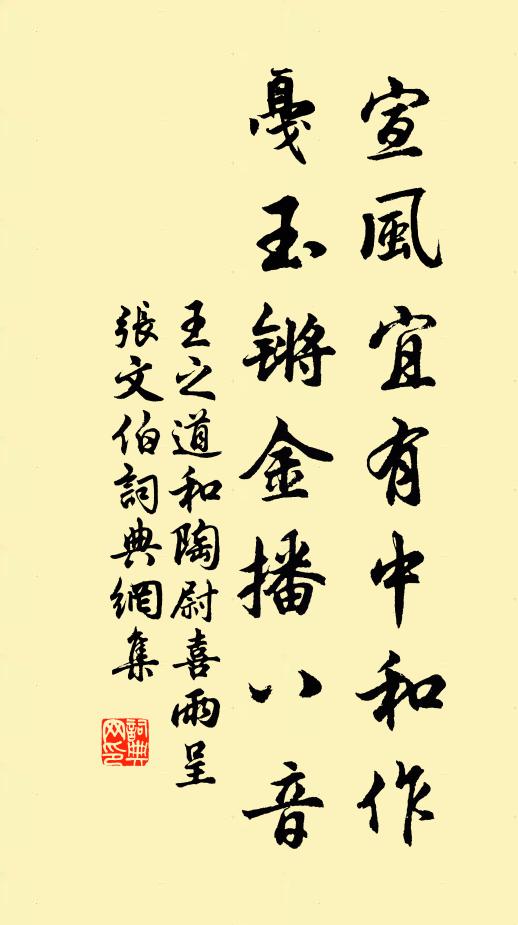 宣風宜有中和作
戛玉锵金播八音
王之道和陶尉喜雨呈
張文伯詞典網集
詞典
网印